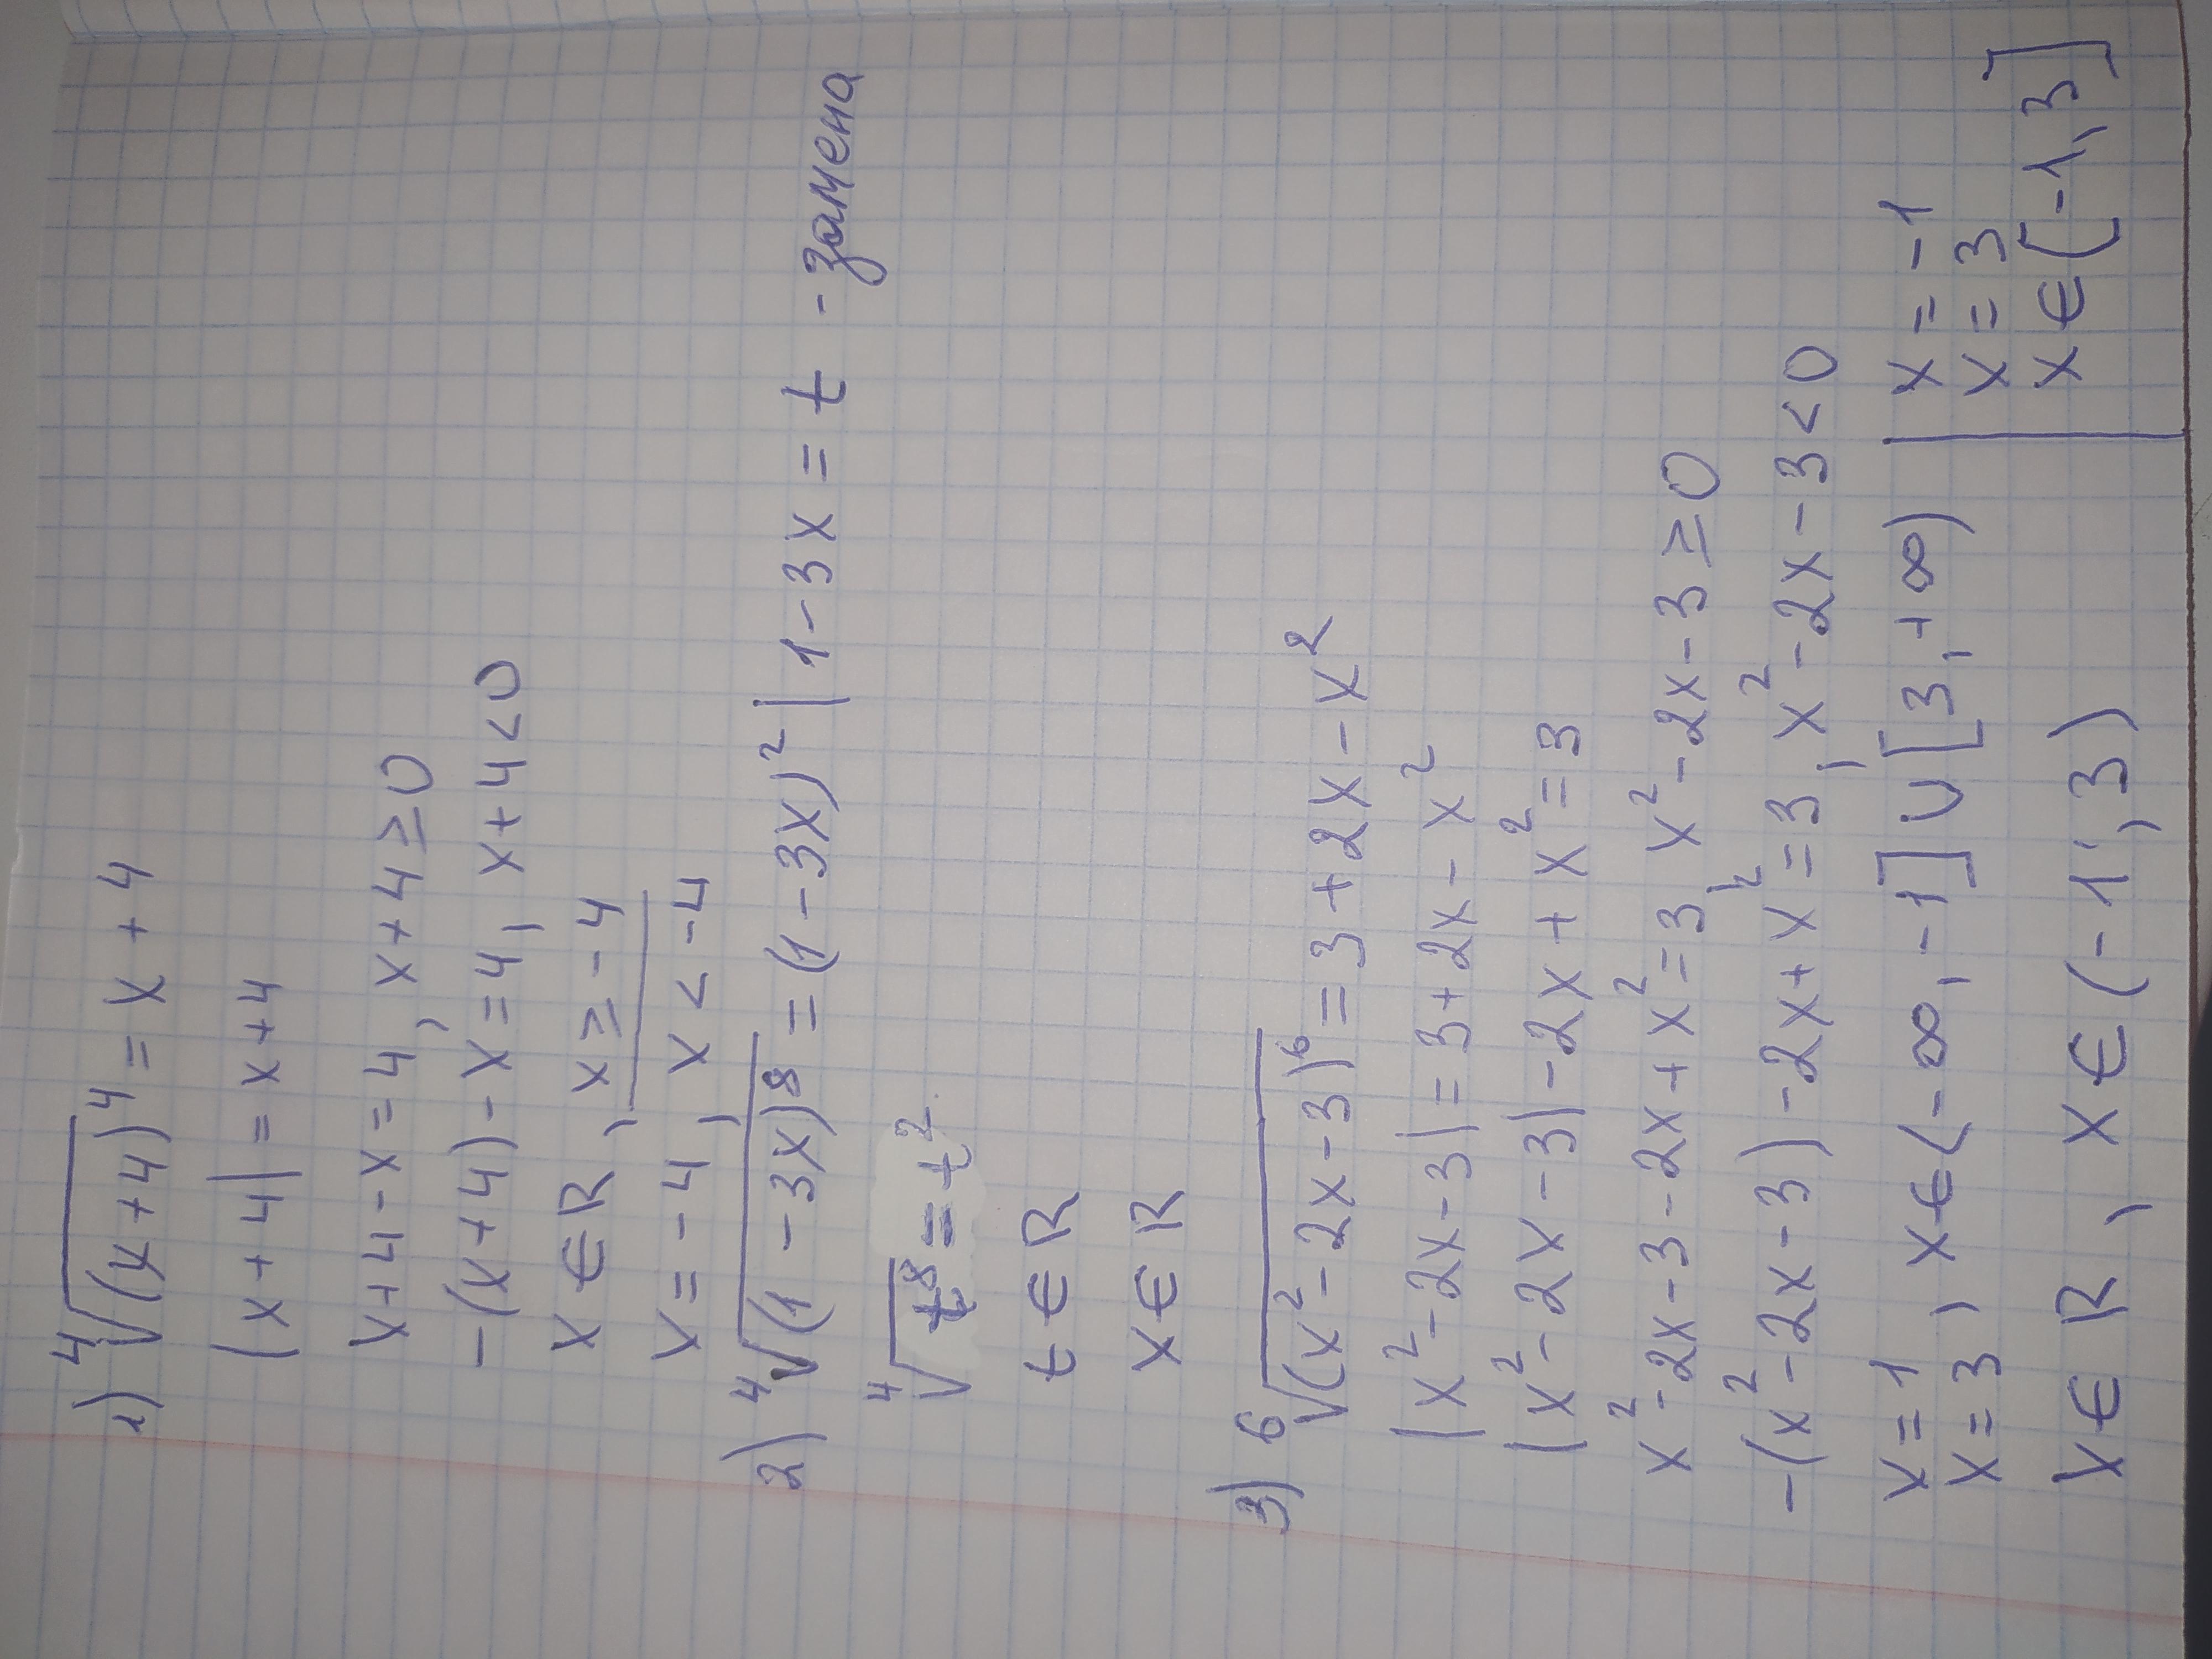 1) ⁴√(x+4)⁴ = x + 4
|x+4| = x+4
x+4-x=4, x+4≥0
-(x+4)-x=4, x+4<0
x∈R, x≥-4
x=-4, x<-4
2) ⁴√(1-3x)⁸ = (1-3x)² | 1-3x = t - замена
⁴√t⁸ = t²
t∈R
x∈R
3) ⁶√(x²-2x-3)⁶ = 3+2x-x²
|x²-2x-3| = 3+2x-x²
|x²-2x-3|-2x+x²=3
x²-2x-3-2x+x²=3, x²-2x-3≥0
-(x²-2x-3)-2x+x²=3, x²-2x-3<0
x=1
x=3, x∈(-∞,-1]∪[3,+∞) | x=-1
x=3
x∈R, x∈(-1;,3) | x∈[-1,3]